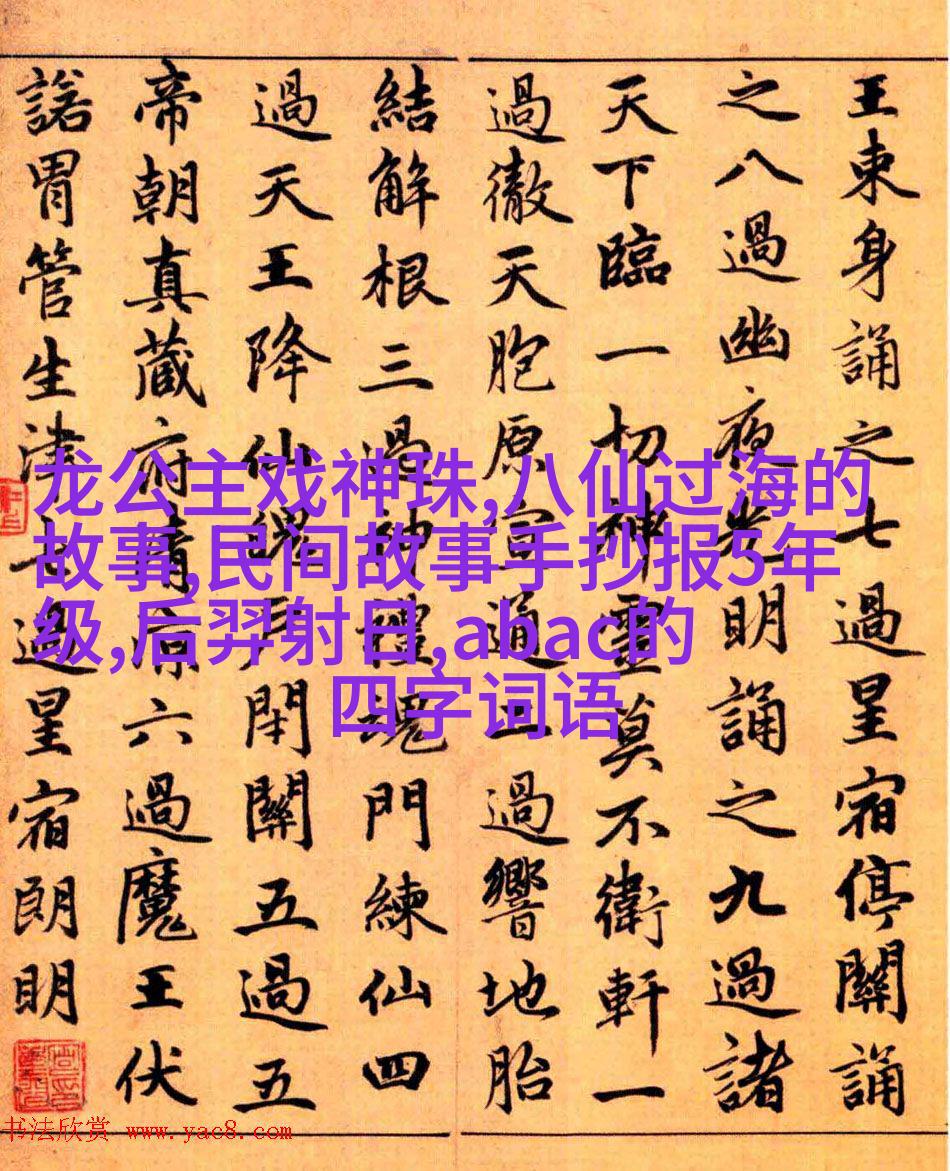 王束身誦之七過星宿停關誦
之八過幽夜光明誦之九過諸
天下臨一切神靈莫不衛軒一
過徹天胞原宣通二過響地胎
結解根三過神禮魂門練仙四
過天王降仙魄戶閉關五過五
帝朝真藏府清涼六過魔王伏
諾胃管生津七過星宿朗明
龙公主戏神珠,八仙过海的
故事,民间故事手抄报5年
级,后羿射日,abac的
四字词语
书法欣赏 www.yac8.com